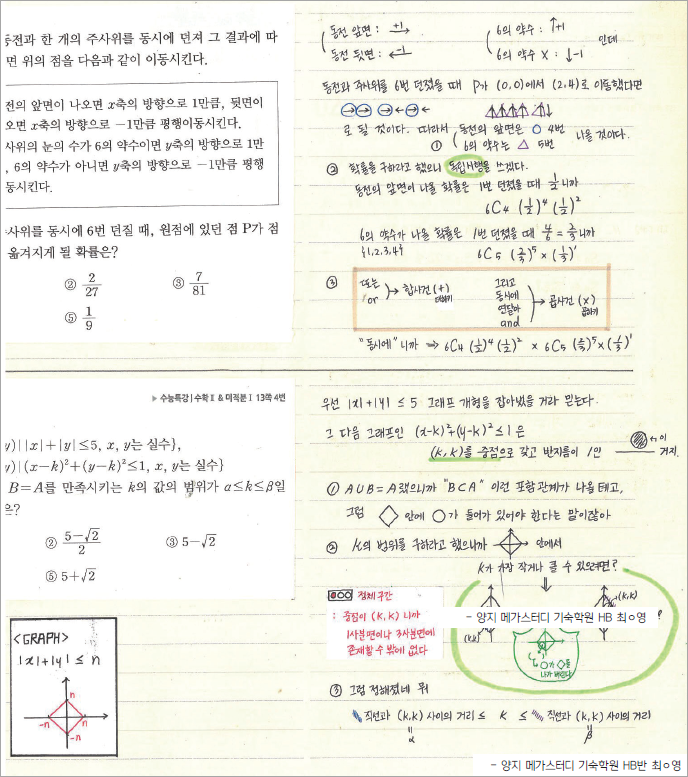 동전과 한 개의 주사위를 동시에 던져 그 결과에 따
면 위의 점을 다음과 같이 이동시킨다.
전의 앞면이 나오면 x축의 방향으로 1만큼, 뒷면이
오면 x축의 방향으로 −1만큼 평행이동시킨다.
사위의 눈의 수가 6의 약수이면 y축의 방향으로 1만
, 6의 약수가 아니면 y축의 방향으로 −1만큼 평행
동시킨다.
사위를 동시에 6번 던질 때, 원점에 있던 점 P가 점
옮겨지게 될 확률은?
② 2/27 ③ 7/81
⑤ 1/9
동전 앞면 : +1→ 6의 약수 : ↑+1
동전 뒷면 : ←-1 6의 약수 X : ↓-1 인데
동전과 주사위를 6번 던졌을 때 P가 (0,0)에서 (2,4)로 이동했다면
로 될 것이다. 따라서 ① 동전의 앞면은 ○ 4번
6의 약수는 △ 5번 나올 것이다.
② 확률을 구하라고 했으니 독립시행을 쓰겠다.
동전의 앞면이 나올 확률은 1번 던졌을 때 1/2 니까
6C4 (1/2)^4 (1/2)^2
6의 약수가 나올 확률은 1번 던졌을 때 4/6 = 2/3 니까
{1,2,3,6}
6C5 (2/3)^5 × (1/3)^1
③ 또는 or → 합사건 (+) 더하기
그리고 동시에 연달아 and → 곱사건 (×) 곱하기
"동시에" 니까 ⇒ 6C4 (1/2)^4 (1/2)^2 × 6C5 (2/3)^5 × (1/3)^1
▶ 수능특강 | 수학Ⅱ & 미적분Ⅰ 13쪽 4번
y) | |x|+|y|≤5, x, y는 실수},
y) | (x−k)²+(y−k)²≤1, x, y는 실수}
B=A를 만족시키는 k의 값의 범위가 α≤k≤β일
은?
② (5−√2)/2 ③ 5−√2
⑤ 5+√2
<GRAPH>
|x|+|y| ≤ n
n
-n n
-n
우선 |x|+|y| ≤ 5 그래프 개형을 잡아냈을 거라 믿는다.
그 다음 그래프인 (x-k)²+(y-k)² ≤ 1 은
(k, k)를 중점으로 갖고 반지름이 1인 ←이거지.
① A∪B = A 랬으니까 "B⊂A" 이런 포함관계가 나올 테고,
그럼 ◇ 안에 ○가 들어가 있어야 한다는 말이잖아
② k의 범위를 구하라고 했으니까 안에서
k가 가장 작거나 클 수 있으려면?
전체 구간
: 중점이 (k, k) 니까
1사분면이나 3사분면에
존재할 수 밖에 없다
(k,k)
(k,k)
- 양지 메가스터디 기숙학원 HB 최ㅇ영
③ 그럼 정해졌네 뭐
직선과 (k,k) 사이의 거리 ≤ k ≤ 직선과 (k,k) 사이의 거리
α β
- 양지 메가스터디 기숙학원 HB반 최ㅇ영